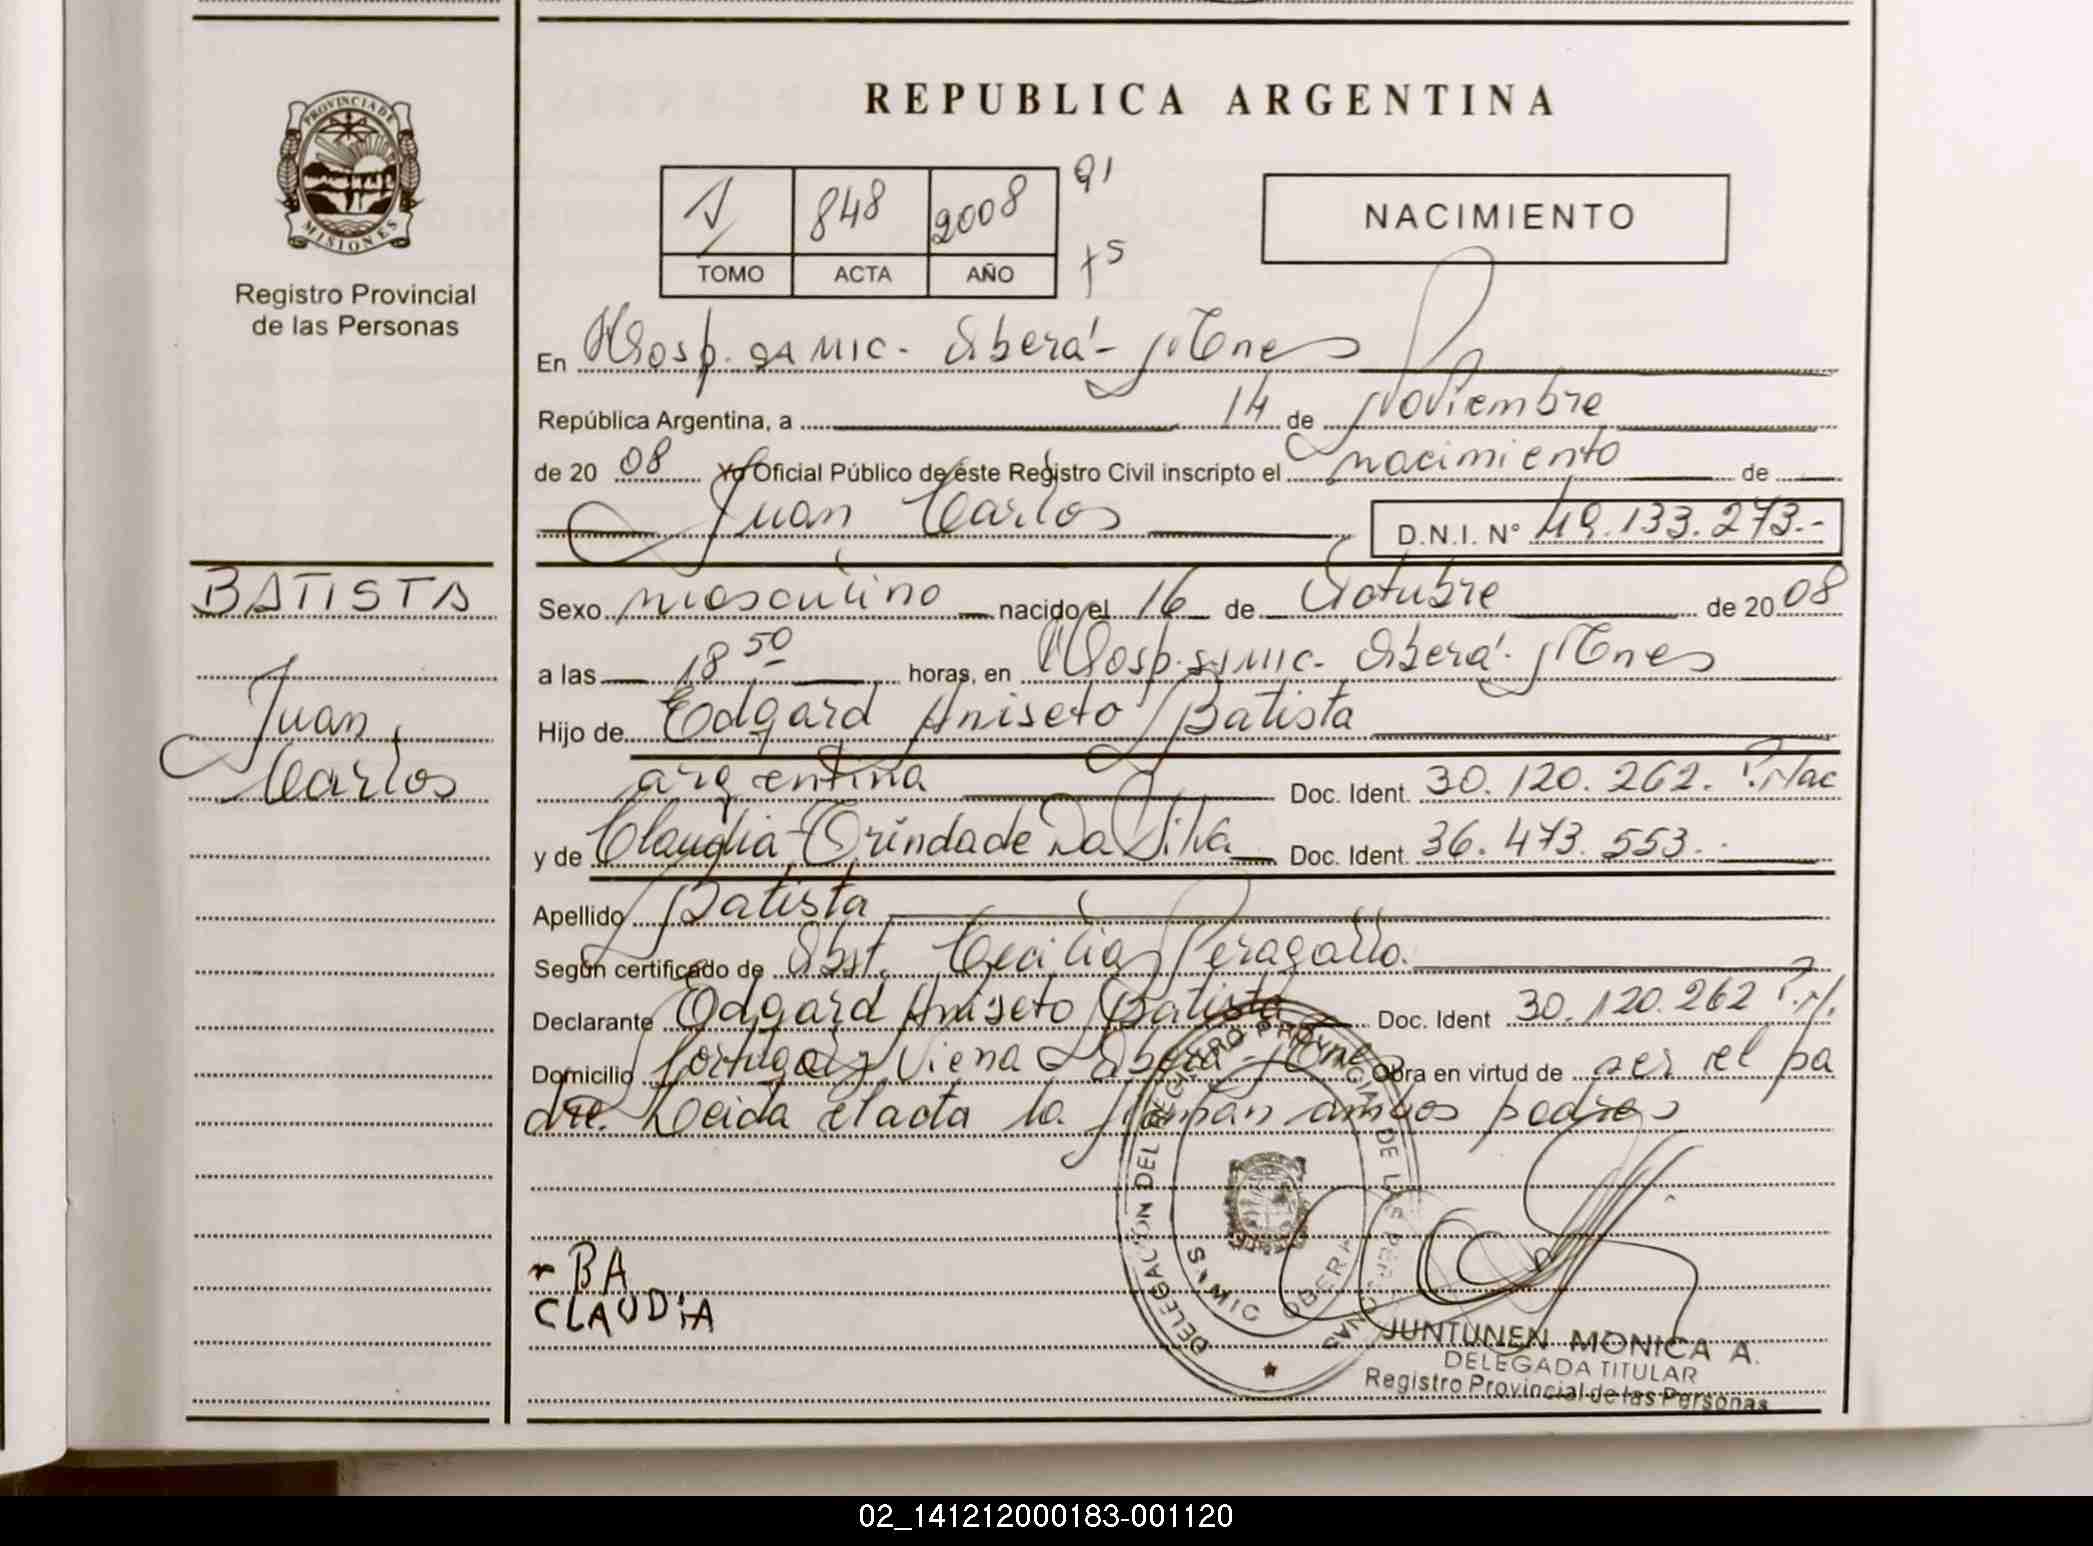 REPUBLICA ARGENTINA
PROVINCIA DE
MISIONES
Registro Provincial
de las Personas
1 848 2008 91
TOMO ACTA AÑO
NACIMIENTO
En Hosp. SAMIC - Oberá - Mnes
República Argentina, a 14 de Noviembre
de 20 08 Yo Oficial Público de éste Registro Civil inscripto el nacimiento de
Juan Carlos D.N.I. Nº 49.133.273.-
BATISTA
Juan
Carlos
Sexo masculino nacido el 16 de Octubre de 20 08
a las 18 50 horas, en Hosp. SAMIC - Oberá - Mnes
Hijo de Edgard Aniseto Batista
argentina Doc. Ident. 30.120.262.
y de Claudia Trindade Da Silva Doc. Ident. 36.473.553.
Apellido Batista
Según certificado de Obst. Cecilia Peragallo.
Declarante Edgard Aniseto Batista Doc. Ident 30.120.262
Domicilio Portugal y Viena Oberá - Mnes Obra en virtud de ser el pa
dre. Leida el acta la firman ambos padres
BA
CLAUDiA
DELEGACIÓN DEL REGISTRO PROVINCIAL DE LAS PERSONAS
OBERA
JUNTUNEN MONICA A.
DELEGADA TITULAR
Registro Provincial de las Personas
02_141212000183-001120